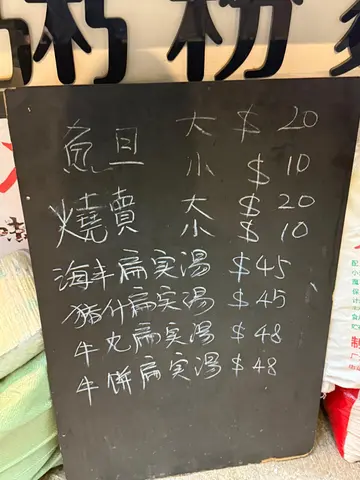 粥粉麵
魚旦 大 $20
小 $10
燒賣 大 $20
小 $10
海丰扁实湯 $45
猪什扁実湯 $45
牛丸扁実湯 $48
牛餅扁実湯 $48